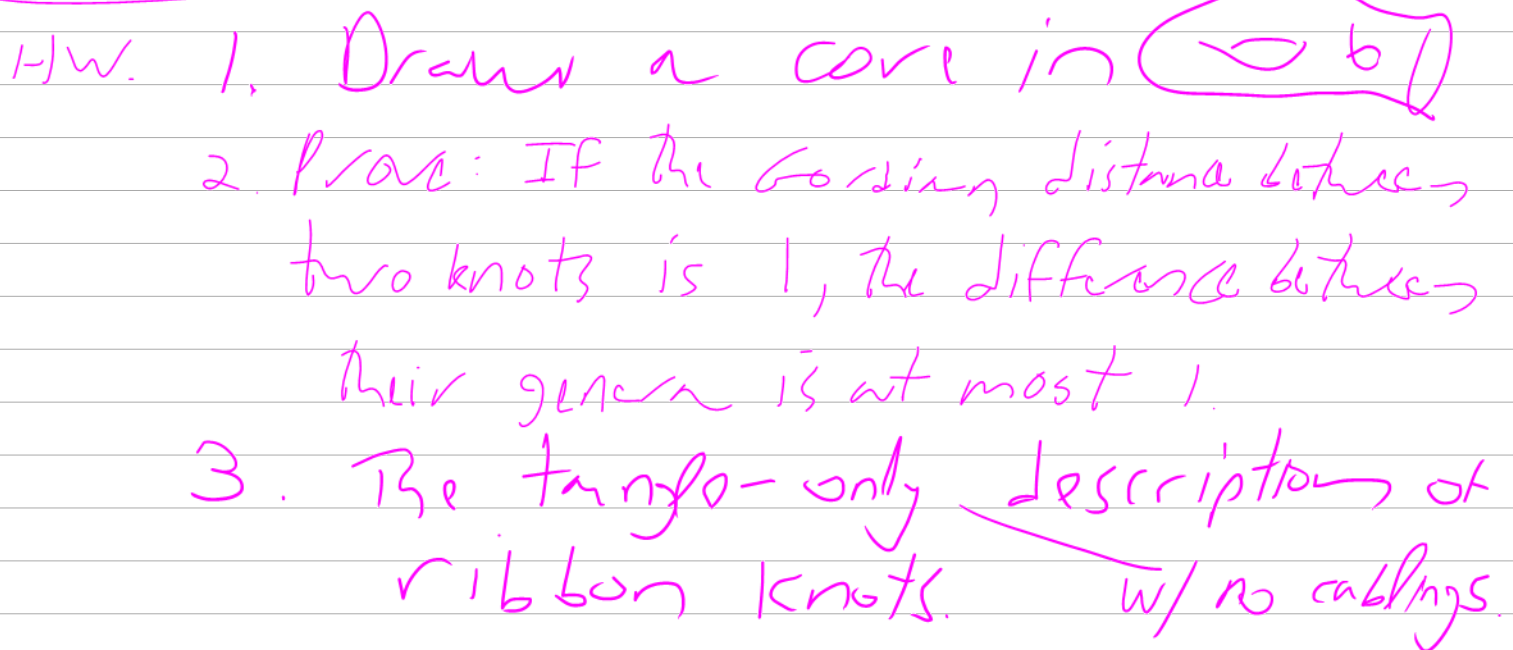 HW. 1. Draw a core in b
2. Prove: If the Gordian distance between
two knots is 1, the difference between
their genera is at most 1.
3. The tangle-only description of
ribbon knots. w/ no cablings.